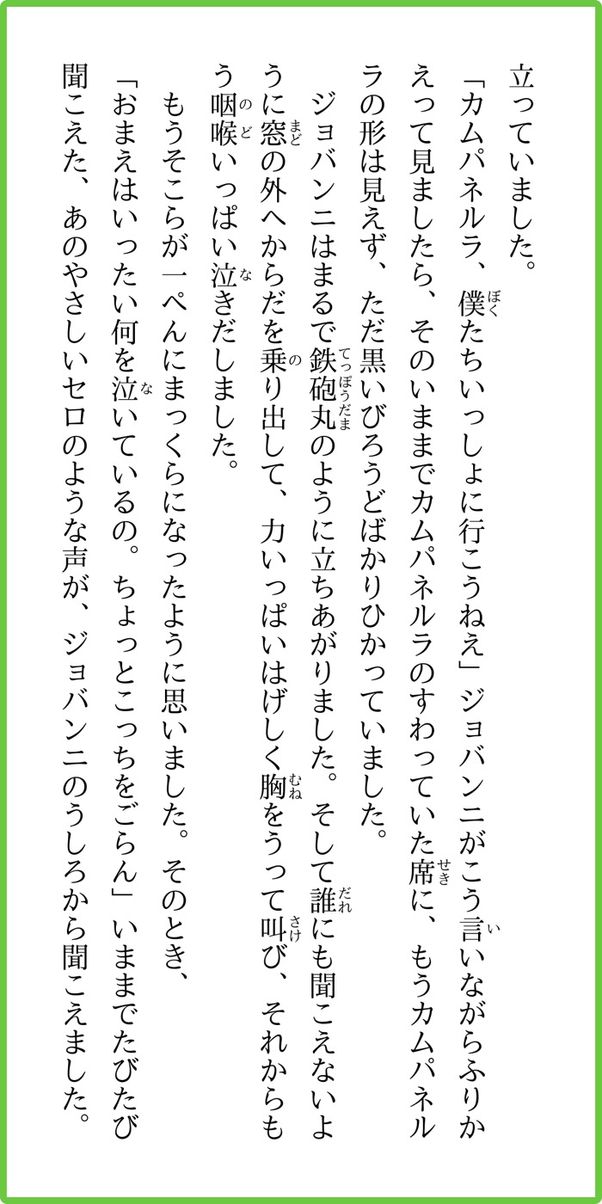 立っていました。
「カムパネルラ、僕たちいっしょに行こうねえ」ジョバンニがこう言いながらふりか
えって見ましたら、そのいままでカムパネルラのすわっていた席に、もうカムパネル
ラの形は見えず、ただ黒いびろうどばかりひかっていました。
ジョバンニはまるで鉄砲丸のように立ちあがりました。そして誰にも聞こえないよ
うに窓の外へからだを乗り出して、力いっぱいはげしく胸をうって叫び、それからも
う咽喉いっぱい泣きだしました。
もうそこらが一ぺんにまっくらになったように思いました。そのとき、
「おまえはいったい何を泣いているの。ちょっとこっちをごらん」いままでたびたび
聞こえた、あのやさしいセロのような声が、ジョバンニのうしろから聞こえました。